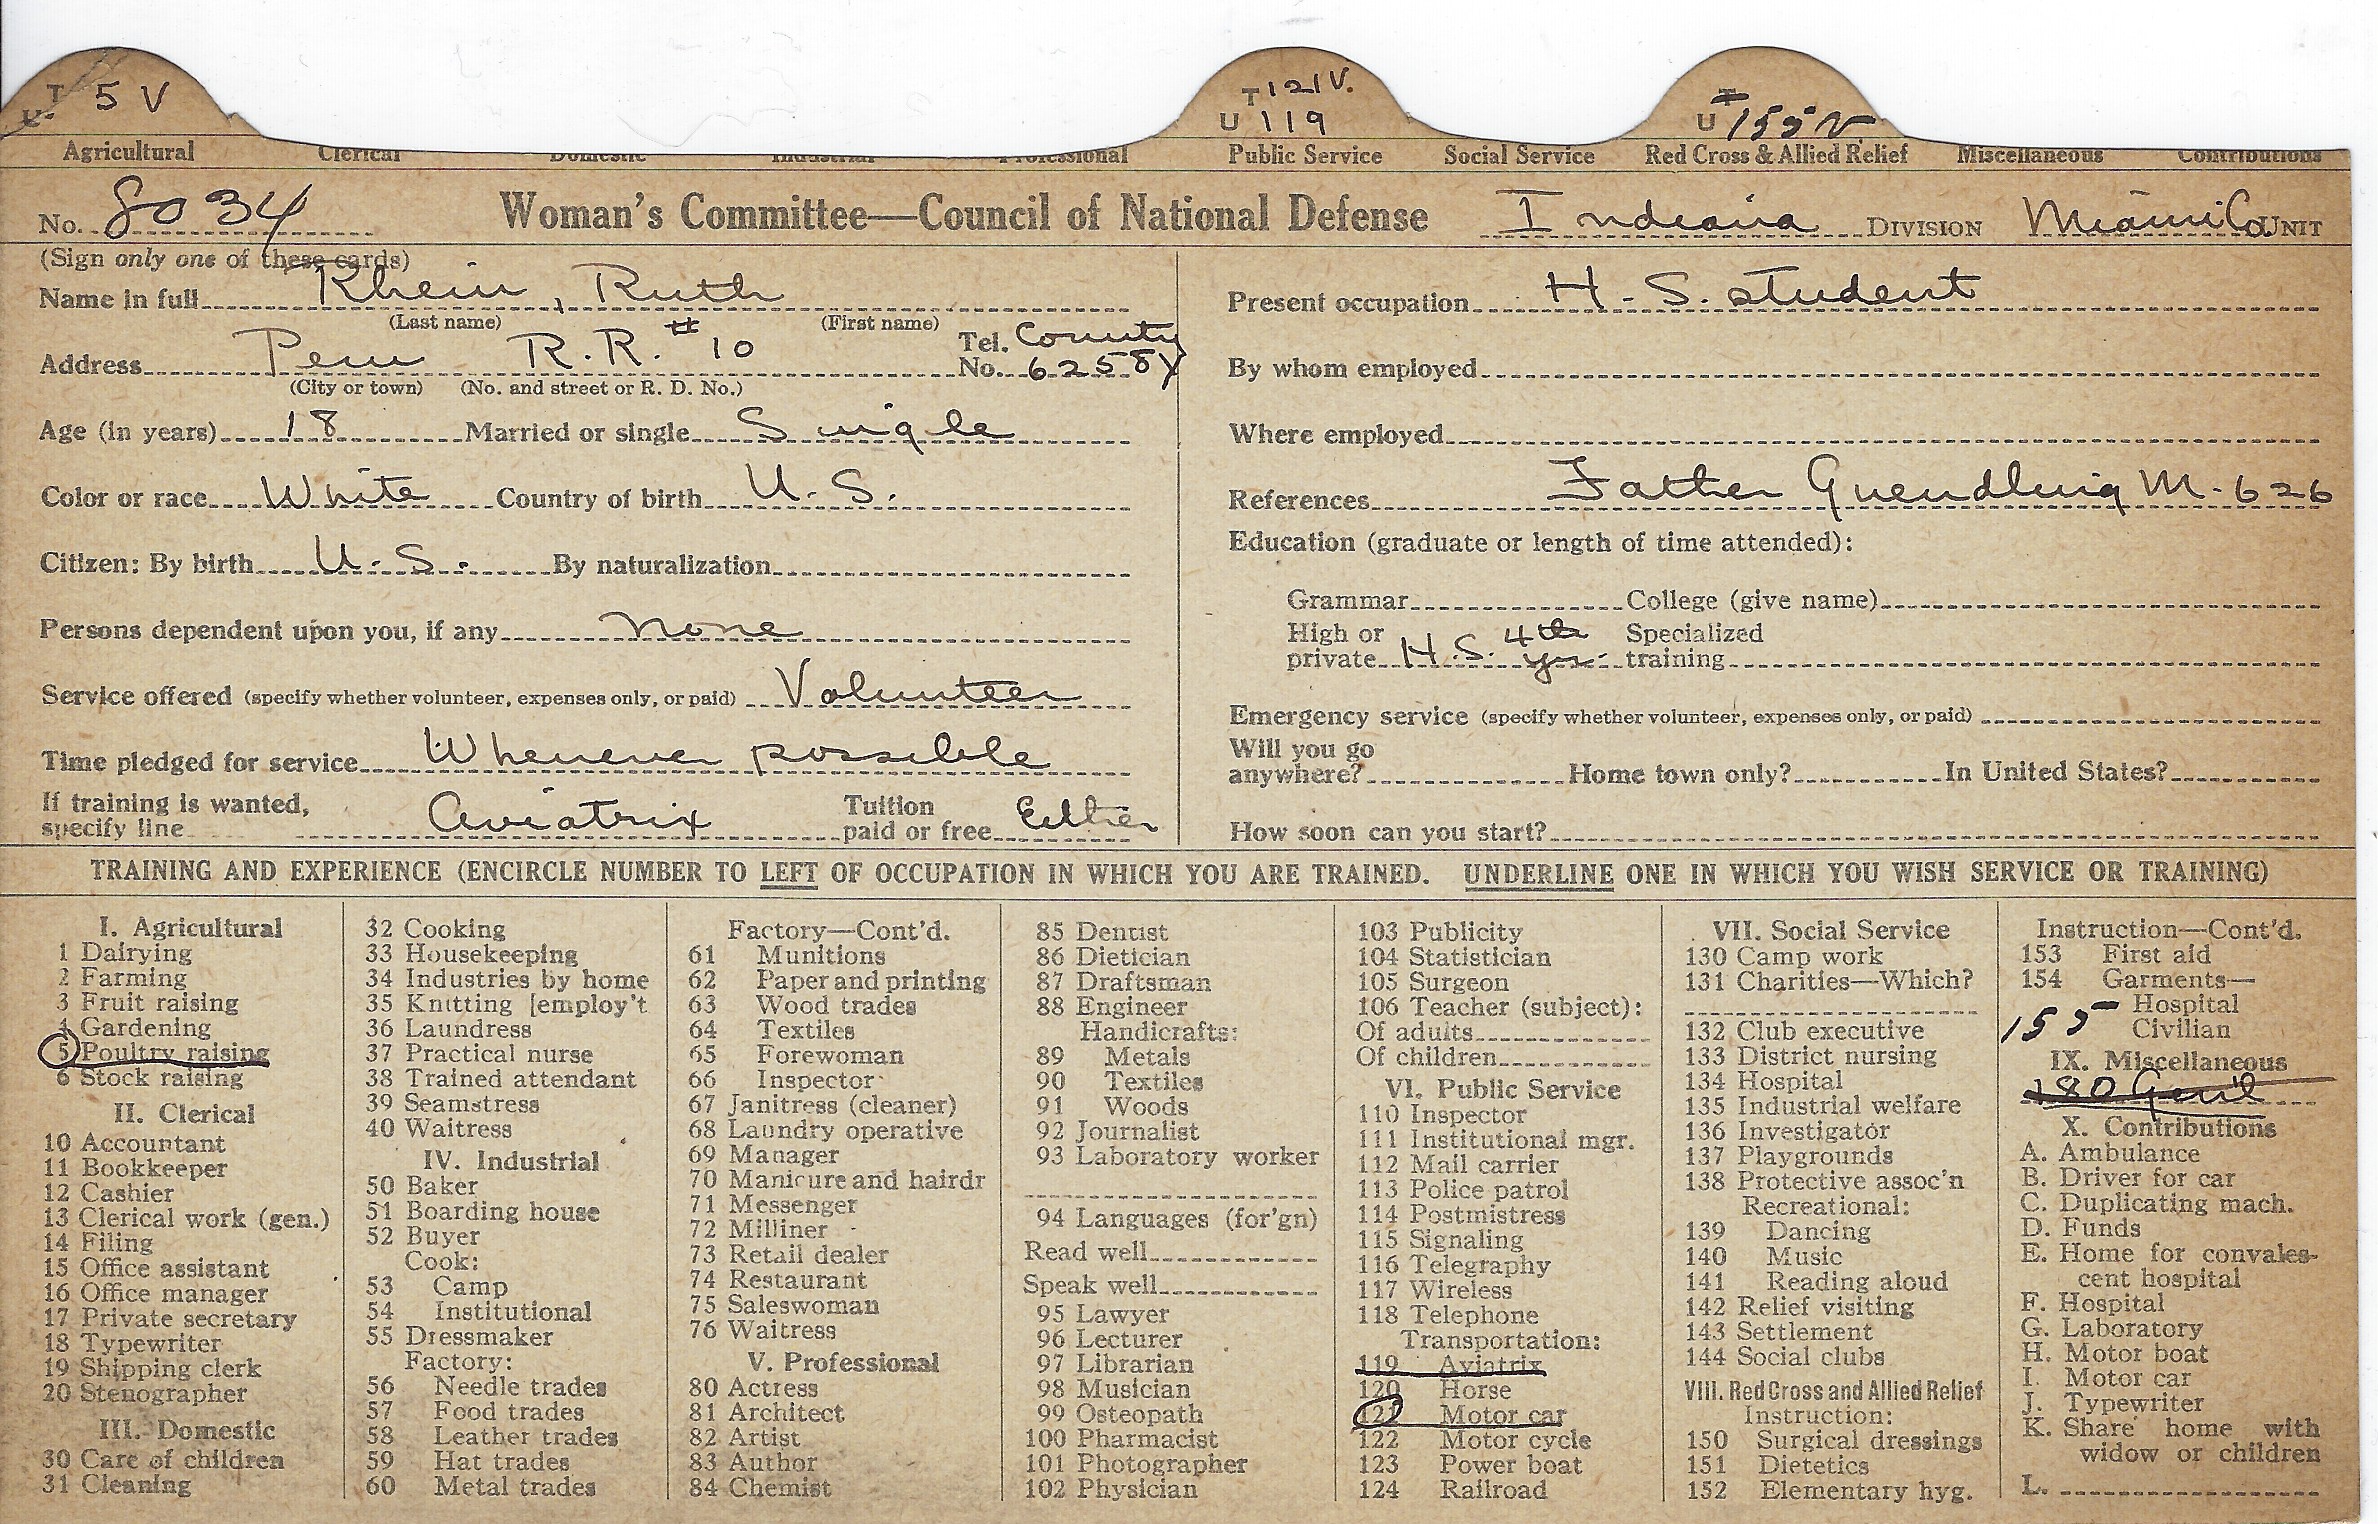 T 5 V
U
T 121 V.
U 119
T
U 155 V
Agricultural Clerical Domestic Industrial Professional Public Service Social Service Red Cross & Allied Relief Miscellaneous Contributions
No. 8034 Woman's Committee—Council of National Defense Indiana DIVISION Miami Co. UNIT
(Sign only one of these cards)
Name in full Rhein, Ruth
(Last name) (First name)
Address Peru R.R. # 10 Tel. No. County 6258Y
(City or town) (No. and street or R. D. No.)
Age (in years) 18 Married or single Single
Color or race White Country of birth U.S.
Citizen: By birth U.S. By naturalization
Persons dependent upon you, if any none
Service offered (specify whether volunteer, expenses only, or paid) Volunteer
Time pledged for service Whenever possible
If training is wanted, specify line Aviatrix Tuition paid or free Either
Present occupation H-S. student
By whom employed
Where employed
References Father Guendling M-626
Education (graduate or length of time attended):
Grammar College (give name)
High or private H.S. 4th yr. Specialized training
Emergency service (specify whether volunteer, expenses only, or paid)
Will you go anywhere? Home town only? In United States?
How soon can you start?
TRAINING AND EXPERIENCE (ENCIRCLE NUMBER TO LEFT OF OCCUPATION IN WHICH YOU ARE TRAINED. UNDERLINE ONE IN WHICH YOU WISH SERVICE OR TRAINING)
I. Agricultural
1 Dairying
2 Farming
3 Fruit raising
4 Gardening
5 Poultry raising
6 Stock raising
II. Clerical
10 Accountant
11 Bookkeeper
12 Cashier
13 Clerical work (gen.)
14 Filing
15 Office assistant
16 Office manager
17 Private secretary
18 Typewriter
19 Shipping clerk
20 Stenographer
III. Domestic
30 Care of children
31 Cleaning
32 Cooking
33 Housekeeping
34 Industries by home
35 Knitting [employ't
36 Laundress
37 Practical nurse
38 Trained attendant
39 Seamstress
40 Waitress
IV. Industrial
50 Baker
51 Boarding house
52 Buyer
Cook:
53 Camp
54 Institutional
55 Dressmaker
Factory:
56 Needle trades
57 Food trades
58 Leather trades
59 Hat trades
60 Metal trades
Factory—Cont'd.
61 Munitions
62 Paper and printing
63 Wood trades
64 Textiles
65 Forewoman
66 Inspector
67 Janitress (cleaner)
68 Laundry operative
69 Manager
70 Manicure and hairdr
71 Messenger
72 Milliner
73 Retail dealer
74 Restaurant
75 Saleswoman
76 Waitress
V. Professional
80 Actress
81 Architect
82 Artist
83 Author
84 Chemist
85 Dentist
86 Dietician
87 Draftsman
88 Engineer
Handicrafts:
89 Metals
90 Textiles
91 Woods
92 Journalist
93 Laboratory worker
94 Languages (for'gn)
Read well
Speak well
95 Lawyer
96 Lecturer
97 Librarian
98 Musician
99 Osteopath
100 Pharmacist
101 Photographer
102 Physician
103 Publicity
104 Statistician
105 Surgeon
106 Teacher (subject):
Of adults
Of children
VI. Public Service
110 Inspector
111 Institutional mgr.
112 Mail carrier
113 Police patrol
114 Postmistress
115 Signaling
116 Telegraphy
117 Wireless
118 Telephone
Transportation:
119 Aviatrix
120 Horse
121 Motor car
122 Motor cycle
123 Power boat
124 Railroad
VII. Social Service
130 Camp work
131 Charities—Which?
132 Club executive
133 District nursing
134 Hospital
135 Industrial welfare
136 Investigator
137 Playgrounds
138 Protective assoc'n
Recreational:
139 Dancing
140 Music
141 Reading aloud
142 Relief visiting
143 Settlement
144 Social clubs
VIII. Red Cross and Allied Relief
Instruction:
150 Surgical dressings
151 Dietetics
152 Elementary hyg.
Instruction—Cont'd.
153 First aid
154 Garments—
Hospital
155 Civilian
IX. Miscellaneous
180 Gen'l
X. Contributions
A. Ambulance
B. Driver for car
C. Duplicating mach.
D. Funds
E. Home for convales-
cent hospital
F. Hospital
G. Laboratory
H. Motor boat
I. Motor car
J. Typewriter
K. Share home with
widow or children
L.